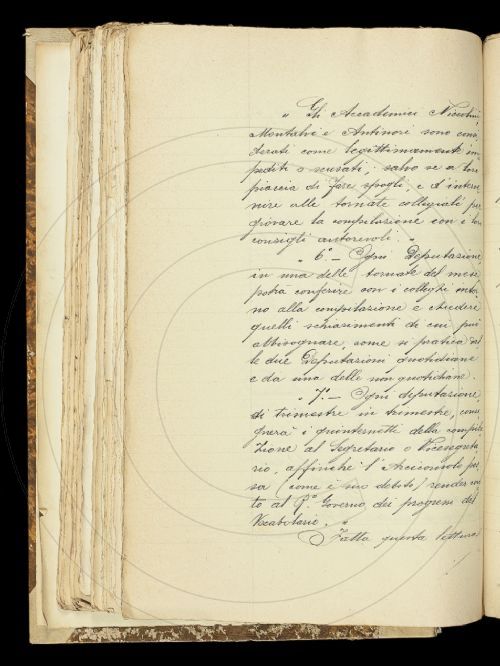 " Gli Accademici Niccolini,
Montalvi e Antinori sono consi
derati come legittimamente im
pediti o scusati; salvo se a loro
piaccia di fare spogli, e d'interve
nire alle tornate collegiali per
giovare la compilazione con i loro
consigli autorevoli. "
" 6.° — Ogni Deputazione,
in una delle tornate del mese
potrà conferire con i colleghi intor
no alla compilazione e chiedere
quelli schiarimenti di cui può
abbisognare, come si pratica dal
le due Deputazioni quotidiane
e da una delle non quotidiane.
" 7.° — Ogni deputazione,
di trimestre in trimestre, conse
gnerà i quinternetti della compila
zione al Segretario o Vicesegreta
rio, affinchè l'Arciconsolo pos
sa (come è suo debito) render con
to al R.° Governo dei progressi del
Vocabolario. "
Fatta questa lettura